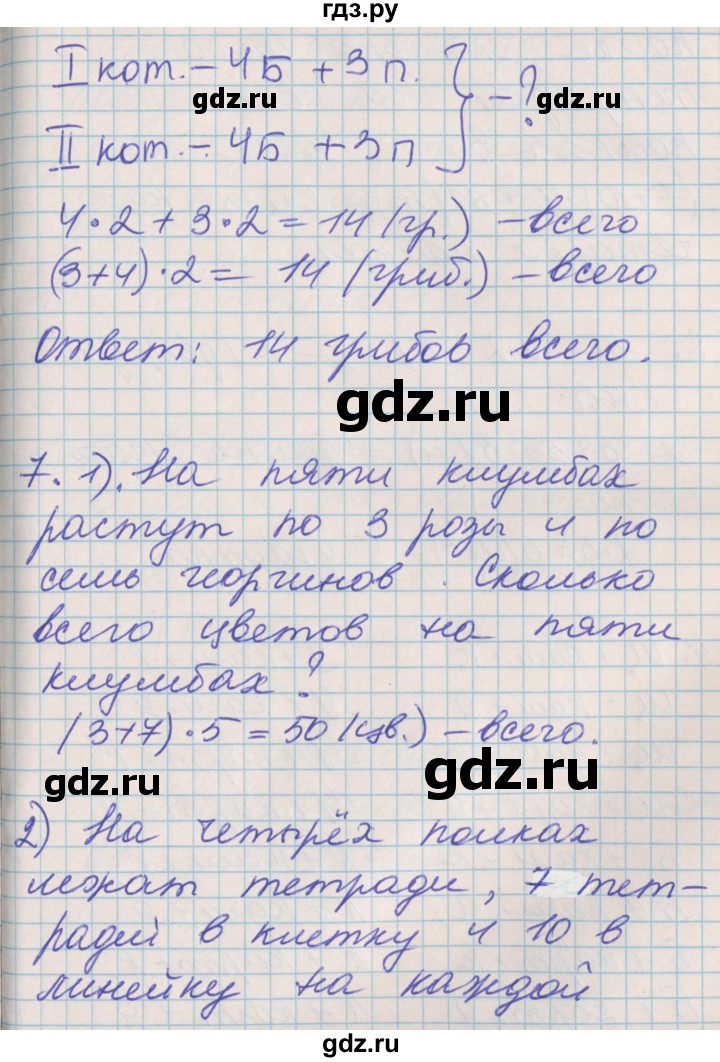 гдз.ру
I кот. – 4Б + 3п.
gdz.ru
} – ?
gdz.ru
II кот. – 4Б + 3п
4·2 + 3·2 = 14 (гр.) – всего
(3+4)·2 = 14 (гриб.) – всего
Ответ: 14 грибов всего.
gdz.ru
7. 1). На пяти клумбах
растут по 3 розы и по
семь георгинов. Сколько
всего цветов на пяти
клумбах?
(3+7)·5 = 50 (цв.) – всего.
gdz.ru
gdz.ru
2) На четырёх полках
лежат тетради, 7 тет–
радей в клетку и 10 в
линейку на каждой
gdz.ru